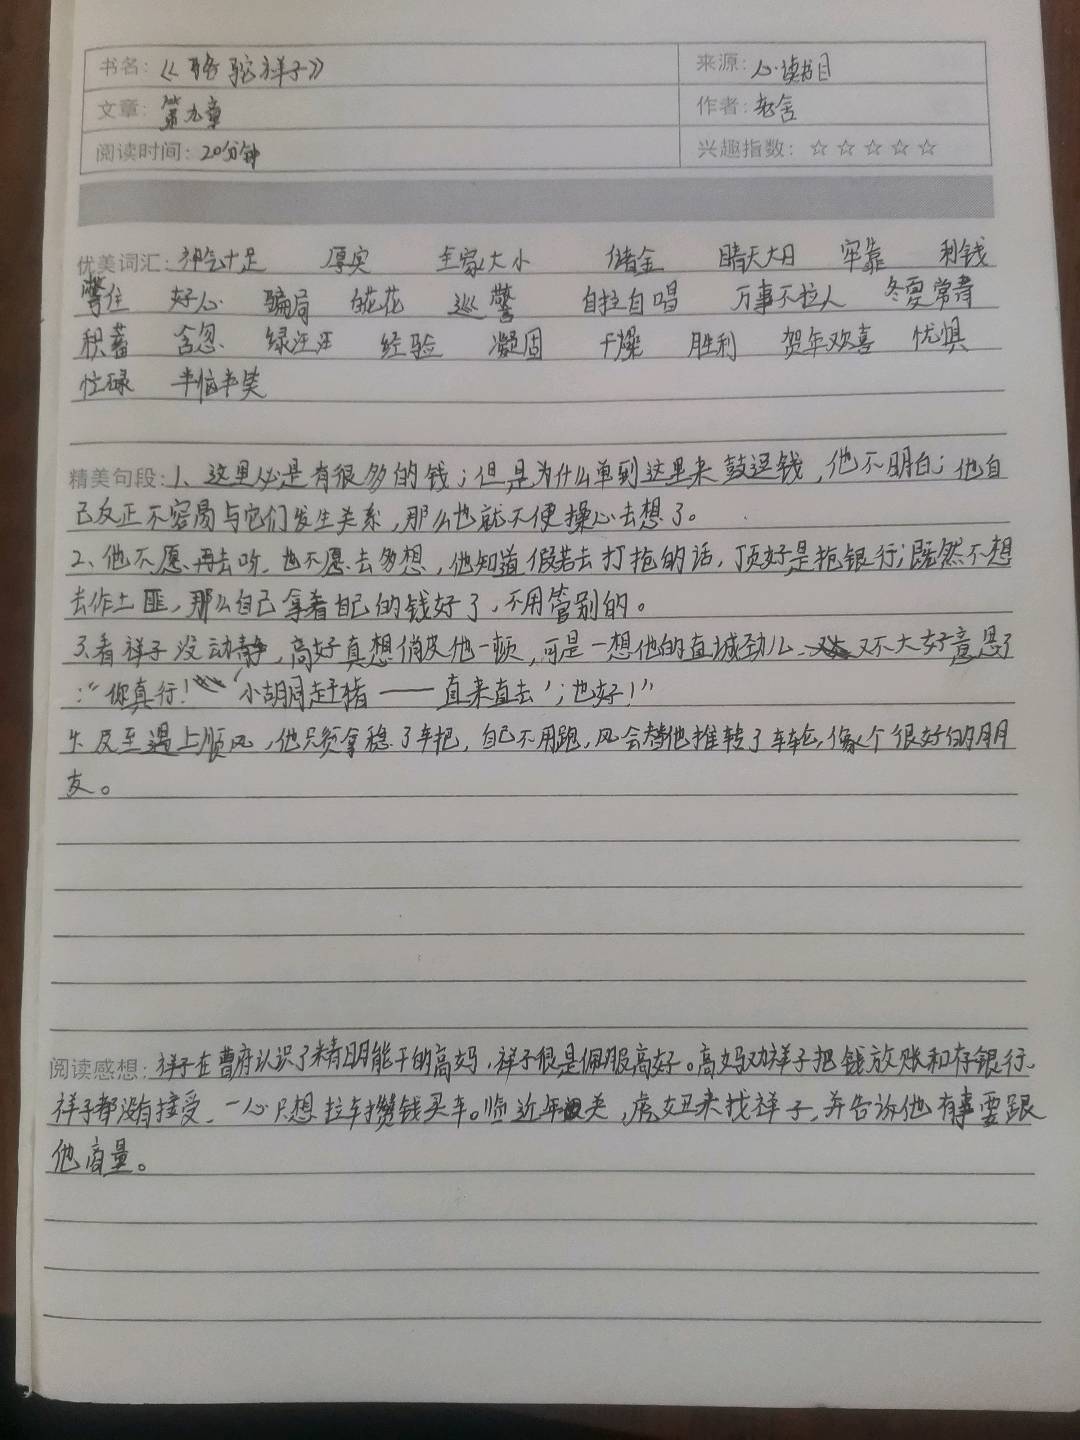 书名: 《骆驼祥子》 来源: 必读书目
文章: 第九章 作者: 老舍
阅读时间: 20分钟 兴趣指数: ☆☆☆☆☆
优美词汇: 神气十足 厚实 全家大小 储金 晴天大日 牢靠 利钱
好心 骗局 白花花 巡警 自拉自唱 万事不拉人 冬夏常青
积蓄 含忽 绿汪汪 经验 凝固 干燥 胜利 贺年欢喜 忧惧
忙碌 半信半笑
精美句段: 1、这里必是有很多的钱;但是为什么单到这里来鼓逗钱,他不明白;他自
己反正不容易与它们发生关系,那么也就不便操心去想了。
2、他不愿再去听,也不愿去多想,他知道假若去打抢的话,顶好是抢银行;既然不想
去作土匪,那么自己拿着自己的钱好了,不用管别的。
3.看祥子没动静,高妈真想俏皮他一顿,可是一想他的直诚劲儿,又不大好意思了
:“你真行!‘小胡同赶猪——直来直去’;也好!”
4.及至遇上顺风,他只须拿稳了车把,自己不用跑,风会替他推转了车轮,像个很好的朋
友。
阅读感想: 祥子在曹府认识了精明能干的高妈,祥子很是佩服高妈。高妈劝祥子把钱放账和存银行,
祥子都没有接受,一心只想拉车攒钱买车。临近年关,虎妞来找祥子,并告诉他有事要跟
他商量。